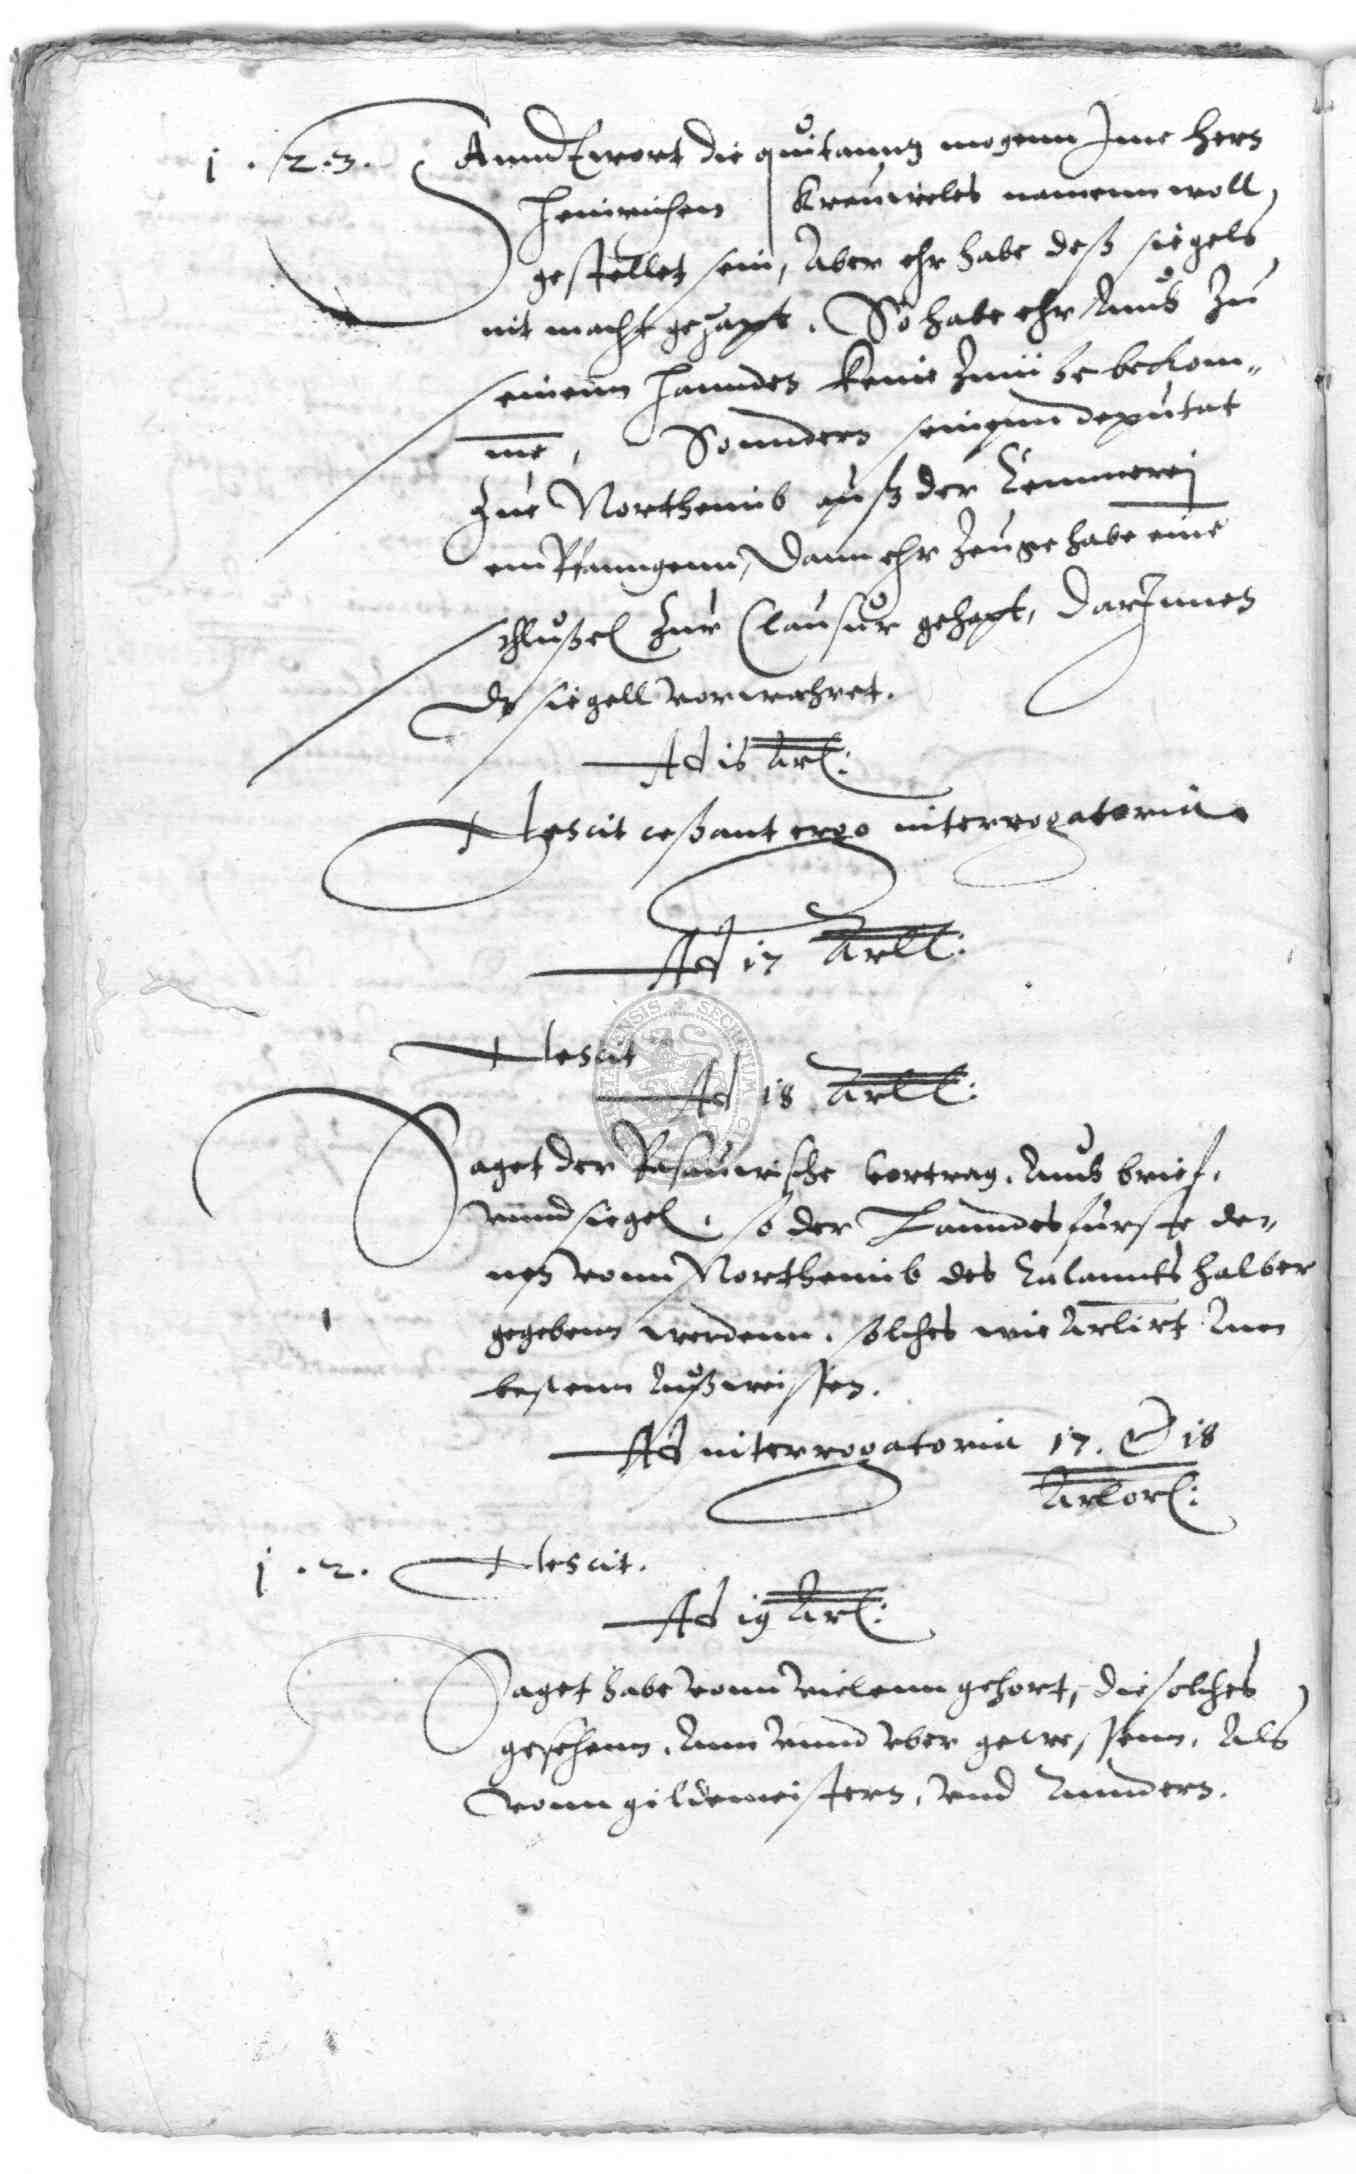 1 . 2 . 3 . Anndtwort die quitanng mogenn Jnne Hern
Heinrichen Kreuweles namenn woll
gestellet sein, Aber ehr habe deß siegels
nit macht gehapt. So habe ehr Auß zu
seinenn hannden keine bekom„
me, Sonndern seinenn deputat
zue Northeimb auß der Cemmerej
empfanngenn, Dann ehr zeuge habe eine
schlußel zur Clausur gehapt, darJnnen
ds siegell vorwahret.
Ad 16 Arl:
Nescit ceßant ergo interrogatoria.
Ad 17 Arll:
Nescit
Ad 18 Arll:
Saget der Paßauwische vertrag. Auch brief,
vnnd siegel, so der Lanndesfurste de„
nen vonn Northeimb des Calannts halber
gegebenn werdenn. solches wie Arlirt Am
bestenn Außweissen.
Ad interrogatoria 17. & 18
Arlorl:
1 . 2 . Nescit.
Ad 19 Arl:
Saget habe vonn vielenn gehort, die solches
gesehenn, Ann vnnd vber gewessenn, Als
vonn gildemeistern, vnd Anndern.